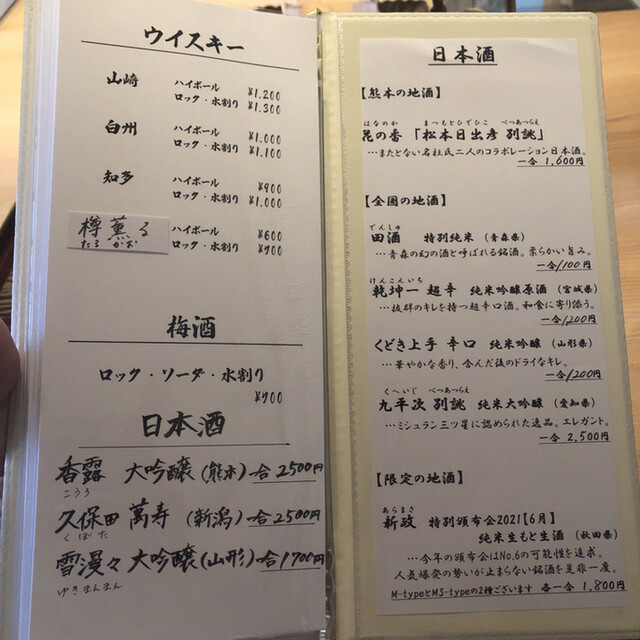 ウイスキー
山崎 ハイボール ¥1.200
ロック・水割り ¥1.300
白州 ハイボール ¥1.000
ロック・水割り ¥1.100
知多 ハイボール ¥900
ロック・水割り ¥1.000
樽薫る ハイボール ¥600
たる かお
ロック・水割り ¥700
梅酒
ロック・ソーダ・水割り
¥700
日本酒
香露 大吟醸(熊本)一合2500円
こうろ
久保田 萬寿(新潟)一合2500円
くぼた
雪漫々 大吟醸(山形)一合1700円
ゆきまんまん
日本酒
【熊本の地酒】
はなのか まつもとひでひこ べつあつらえ
花の香「松本日出彦 別誂」
…またとない名杜氏二人のコラボレーション日本酒。
一合 1,600円
【全国の地酒】
でんしゅ
田酒 特別純米(青森県)
…青森の幻の酒と呼ばれる銘酒。柔らかい旨み。
一合1100円
けんこんいち
乾坤一 超辛 純米吟醸原酒(宮城県)
…抜群のキレを持つ超辛口酒。和食に寄り添う。
一合1200円
くどき上手 辛口 純米吟醸(山形県)
…華やかな香り、含んだ後のドライなキレ。
一合1200円
くへいじ べつあつらえ
九平次 別誂 純米大吟醸(愛知県)
…ミシュラン三ツ星に認められた逸品。エレガント。
一合 2,500円
【限定の地酒】
あらまさ
新政 特別頒布会2021【6月】
純米生もと生酒(秋田県)
…今年の頒布会はNo.6の可能性を追求。
人気爆発の勢いが止まらない銘酒を是非一度。
M-typeとMS-typeの2種ございます 各一合 1,800円